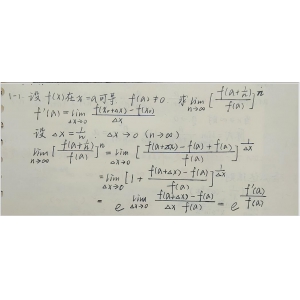 1-1. 设 f(x)在x=a可导 f(a)≠0 求 lim n→∞ [f(a+1/n)/f(a)]^n
f'(a)=lim Δx→0 (f(x₀+Δx)-f(x₀))/Δx
设 Δx=1/n. Δx→0 (n→∞)
lim n→∞ [f(a+1/n)/f(a)]^n = lim Δx→0 [(f(a+Δx)-f(a)+f(a))/f(a)]^(1/Δx)
= lim Δx→0 [1+(f(a+Δx)-f(a))/f(a)]^(1/Δx)
= e^(lim Δx→0 (f(a+Δx)-f(a))/(Δx f(a))) = e^(f'(a)/f(a))